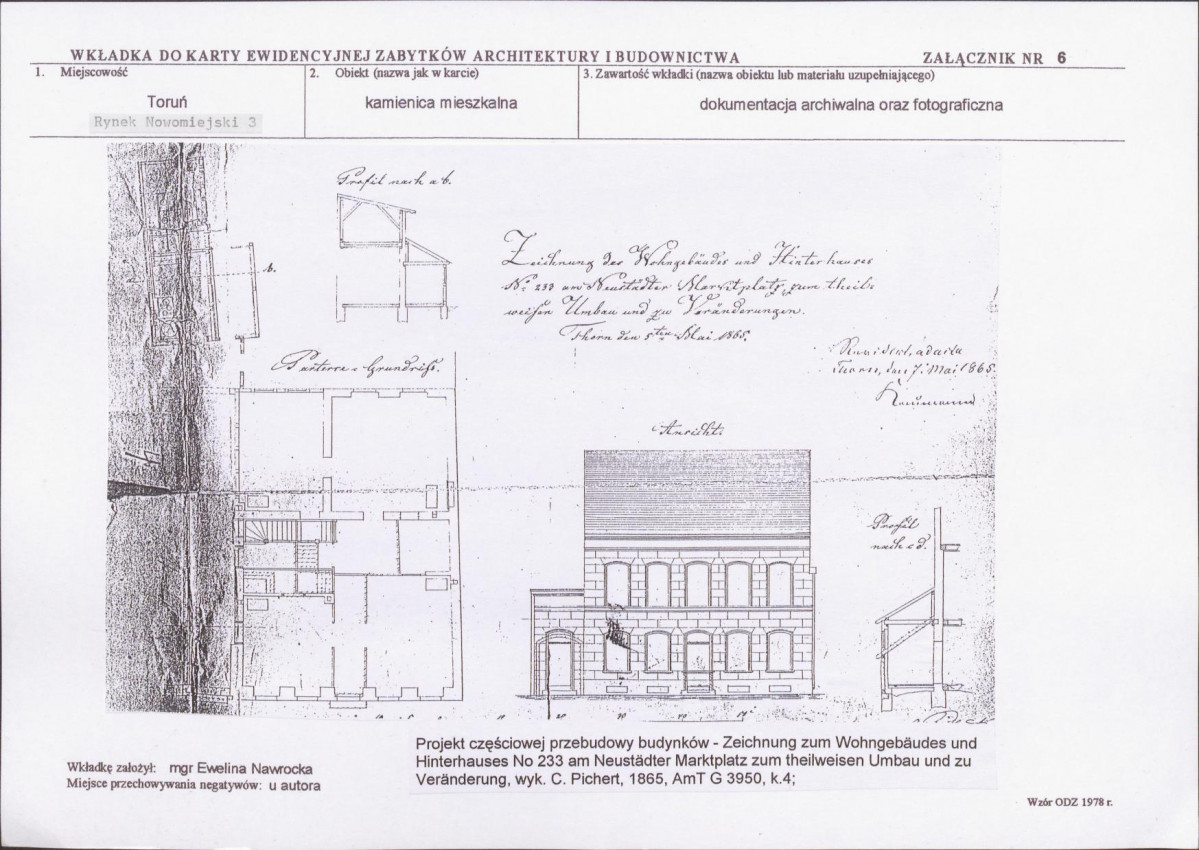 WKŁADKA DO KARTY EWIDENCYJNEJ ZABYTKÓW ARCHITEKTURY I BUDOWNICTWA
ZAŁĄCZNIK NR 6
1. Miejscowość
Toruń
Rynek Nowomiejski 3
2. Obiekt (nazwa jak w karcie)
kamienica mieszkalna
3. Zawartość wkładki (nazwa obiektu lub materiału uzupełniającego)
dokumentacja archiwalna oraz fotograficzna
Profil nach a b.
a
b.
Zeichnung des Wohngebäudes und Hinterhauses
No 233 am Neustädter Marktplatz, zum theil-
weisen Umbau und zu Veränderungen.
Thorn den 5ten Mai 1865.
Thorn, den 7. Mai 1865
Parterre-Grundriss.
Ansicht.
Profil
nach c d.
Projekt częściowej przebudowy budynków - Zeichnung zum Wohngebäudes und
Hinterhauses No 233 am Neustädter Marktplatz zum theilweisen Umbau und zu
Veränderung, wyk. C. Pichert, 1865, AmT G 3950, k.4;
Wkładkę założył: mgr Ewelina Nawrocka
Miejsce przechowywania negatywów: u autora
Wzór ODZ 1978 r.